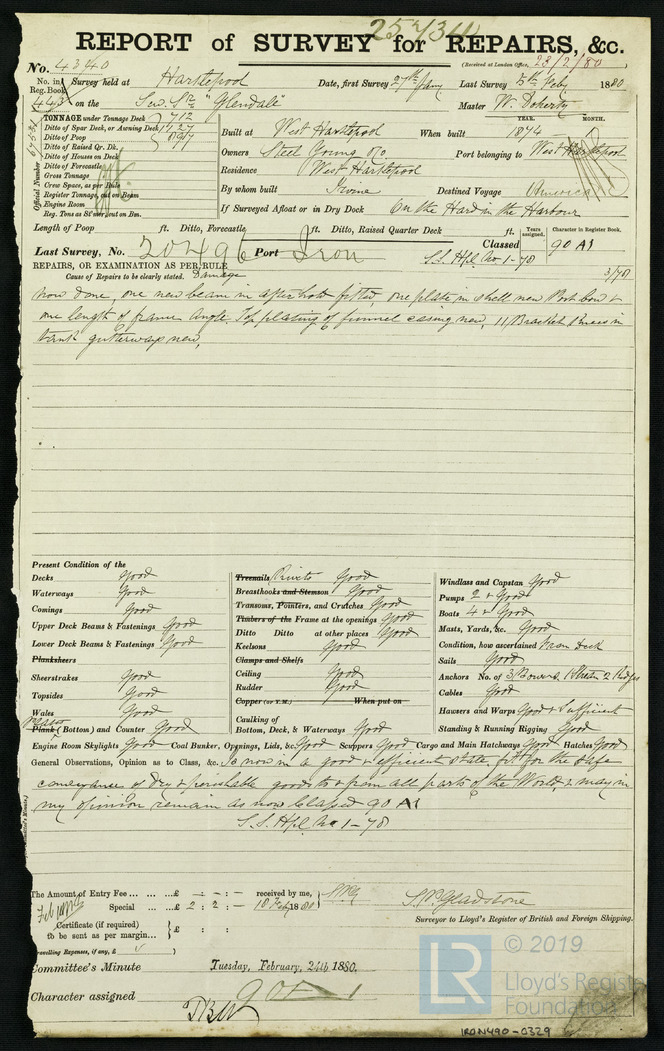 REPORT of SURVEY for REPAIRS, &c.
No. 4340
(Received at London Office, 23/2/80)
No. in Reg. Book
Survey held at Hartlepool Date, first Survey 27th Jany Last Survey 5th Feby 1880
443 on the Scw. Str "Glendale" Master W. Doherty
TONNAGE under Tonnage Deck 712
Ditto of Spar Deck, or Awning Deck
Ditto of Poop
Ditto of Raised Qr. Dk.
Ditto of Houses on Deck
Ditto of Forecastle
Gross Tonnage
Crew Space, as per Rule
Register Tonnage, cut on Beam
Engine Room
Reg. Tons as St'mer, cut on Bm.
Official Number
YEAR. MONTH.
Built at West Hartlepool When built 1874
Owners Steel Young & Co Port belonging to West Hartlepool
Residence West Hartlepool
By whom built Irvine Destined Voyage America
If Surveyed Afloat or in Dry Dock On the Hard in the Harbour
Length of Poop ft. Ditto, Forecastle ft. Ditto, Raised Quarter Deck ft.
Years assigned. Character in Register Book.
Last Survey, No. 20496 Port Iron Classed 90 A1
S.S. Hpl. No 1-78
3/78
REPAIRS, OR EXAMINATION AS PER RULE
Cause of Repairs to be clearly stated. Damage
Now done, one new beam in after hold fitted, one plate in shell new Port bow &
one length of frame angle. Top plating of funnel casing new, 11 Bracket Knees in
tank gutterways new.
Present Condition of the
Decks Good
Waterways Good
Comings Good
Upper Deck Beams & Fastenings Good
Lower Deck Beams & Fastenings Good
Planksheers
Sheerstrakes Good
Topsides Good
Wales Good
Plank (Bottom) and Counter Good
Treenails Rivets Good
Breasthooks and Stemson Good
Transoms, Pointers, and Crutches Good
Timbers of the Frame at the openings Good
Ditto Ditto at other places Good
Keelsons Good
Clamps and Shelfs
Ceiling Good
Rudder Good
Copper (or Y.M.) When put on
Caulking of
Bottom, Deck, & Waterways Good
Windlass and Capstan Good
Pumps 2 & Good
Boats 4 & Good
Masts, Yards, &c. Good
Condition, how ascertained From deck
Sails Good
Anchors No. of 3 Bowers 1 Stream 2 Kedges
Cables Good
Hawsers and Warps Good & Sufficient
Standing & Running Rigging Good
Engine Room Skylights Good Coal Bunker, Openings, Lids, &c. Good Scuppers Good Cargo and Main Hatchways Good Hatches Good
General Observations, Opinion as to Class, &c. Is now in a good & efficient state fit for the safe
conveyance of dry & perishable goods to & from all parts of the World, & may in
my opinion remain as now Classed 90 A1
S.S. Hpl. No 1-78
The Amount of Entry Fee ... £ - : - : - received by me,
Special ... £ 2 : 2 : - 10 Feby 1880
Certificate (if required) £ : :
to be sent as per margin...
Travelling Expenses, if any, £
S.P. Gladstone
Surveyor to Lloyd's Register of British and Foreign Shipping.
Committee's Minute Tuesday, February, 24th 1880.
Character assigned 90 A1
LR
© 2019
Lloyd's Register
Foundation
IRON490-0329